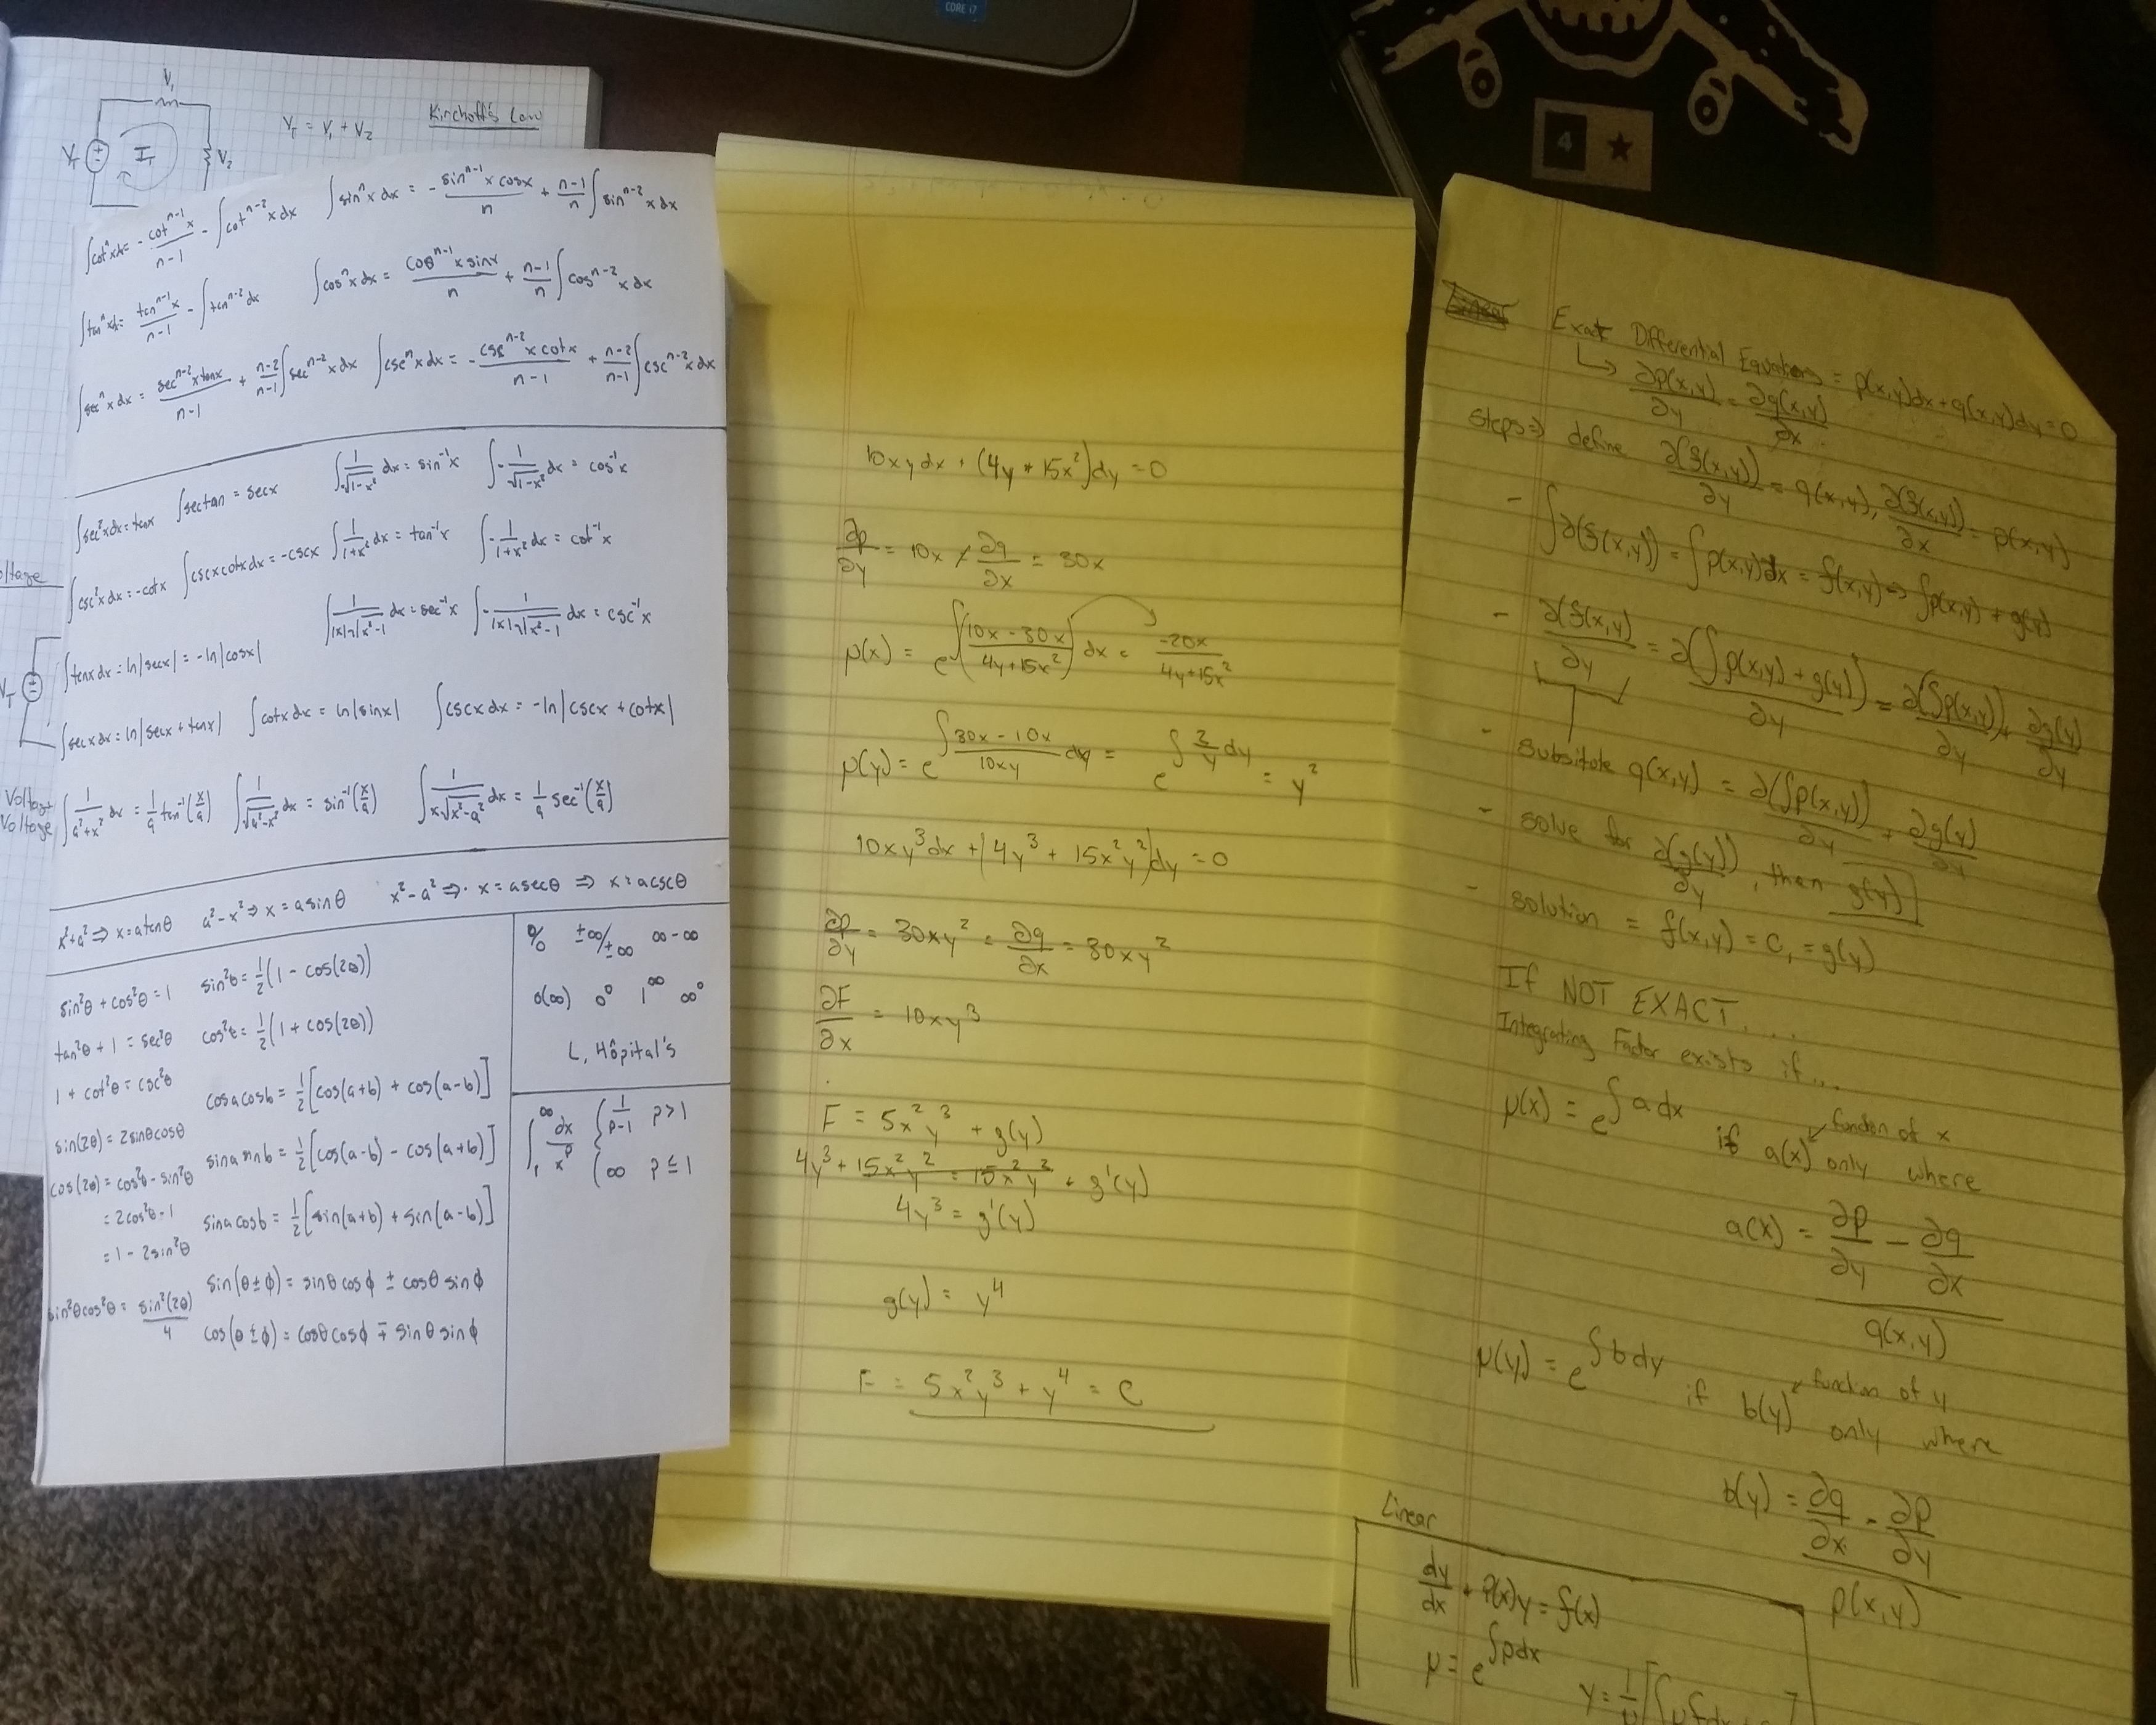 CORE i7
4
V₁
V_T = V₁ + V₂
Kirchoff's Law
V_T
I_T
V₂
∫cotⁿxdx = - cotⁿ⁻¹x / n-1 - ∫cotⁿ⁻²xdx
∫sinⁿxdx = - sinⁿ⁻¹xcosx / n + n-1/n ∫sinⁿ⁻²xdx
∫tanⁿxdx = tanⁿ⁻¹x / n-1 - ∫tanⁿ⁻²dx
∫cosⁿxdx = cosⁿ⁻¹xsinx / n + n-1/n ∫cosⁿ⁻²xdx
∫secⁿxdx = secⁿ⁻²xtanx / n-1 + n-2/n-1 ∫secⁿ⁻²xdx
∫cscⁿxdx = - cscⁿ⁻²xcotx / n-1 + n-2/n-1 ∫cscⁿ⁻²xdx
∫sec²xdx = tanx
∫sectan = secx
∫ 1/√(1-x²) dx = sin⁻¹x
∫ - 1/√(1-x²) dx = cos⁻¹x
∫csc²xdx = -cotx
∫cscxcotxdx = -cscx
∫ 1/(1+x²) dx = tan⁻¹x
∫ - 1/(1+x²) dx = cot⁻¹x
∫ 1/(|x|√(x²-1)) dx = sec⁻¹x
∫ - 1/(|x|√(x²-1)) dx = csc⁻¹x
∫tanxdx = ln|secx| = -ln|cosx|
∫secxdx = ln|secx + tanx|
∫cotxdx = ln|sinx|
∫cscxdx = -ln|cscx + cotx|
∫ 1/(a²+x²) dx = 1/a tan⁻¹(x/a)
∫ 1/√(a²-x²) dx = sin⁻¹(x/a)
∫ 1/(x√(x²-a²)) dx = 1/a sec⁻¹(x/a)
x²+a² ⇒ x = atanθ
a²-x² ⇒ x = asinθ
x²-a² ⇒ x = asecθ ⇒ x = acscθ
sin²θ + cos²θ = 1
tan²θ + 1 = sec²θ
1 + cot²θ = csc²θ
sin(2θ) = 2sinθcosθ
cos(2θ) = cos²θ - sin²θ
= 2cos²θ - 1
= 1 - 2sin²θ
sin²θcos²θ = sin²(2θ)/4
sin²θ = ½(1 - cos(2θ))
cos²θ = ½(1 + cos(2θ))
cosacosb = ½[cos(a+b) + cos(a-b)]
sinasinb = ½[cos(a-b) - cos(a+b)]
sinacosb = ½[sin(a+b) + sin(a-b)]
sin(θ±ϕ) = sinθcosϕ ± cosθsinϕ
cos(θ±ϕ) = cosθcosϕ ∓ sinθsinϕ
0/0 ±∞/±∞ ∞-∞
0(∞) 0⁰ 1^∞ ∞⁰
L, Hôpital's
∫₁^∞ dx/x^p { 1/(p-1) p>1
∞ p≤1
V_T
Voltage
Voltage
10xydx + (4y + 15x²)dy = 0
∂p/∂y = 10x ≠ ∂q/∂x = 30x
μ(x) = e^∫((10x-30x)/(4y+15x²))dx = -20x/(4y+15x²)
μ(y) = e^∫(30x-10x)/10xy dy = e^∫2/y dy = y²
10xy³dx + (4y³ + 15x²y²)dy = 0
∂p/∂y = 30xy² = ∂q/∂x = 30xy²
∂F/∂x = 10xy³
F = 5x²y³ + g(y)
4y³ + 15x²y² = 15x²y² + g'(y)
4y³ = g'(y)
g(y) = y⁴
F = 5x²y³ + y⁴ = C
Exact Differential Equations = p(x,y)dx + q(x,y)dy = 0
↳ ∂p(x,y)/∂y = ∂q(x,y)/∂x
Steps ⇒ define ∂(f(x,y))/∂y = q(x,y), ∂(f(x,y))/∂x = p(x,y)
- ∫∂(f(x,y)) = ∫p(x,y)dx = f(x,y) ⇒ ∫p(x,y) + g(y)
- ∂(f(x,y))/∂y = ∂(∫p(x,y) + g(y))/∂y = ∂(∫p(x,y))/∂y + ∂g(y)/∂y
- subsitute q(x,y) = ∂(∫p(x,y))/∂y + ∂g(y)/∂y
- solve for ∂(g(y))/∂y, then g(y)
- solution = f(x,y) = C₁ = g(y)
If NOT EXACT....
Integrating Factor exists if...
μ(x) = e^∫adx if a(x) only where
function of x
a(x) = (∂p/∂y - ∂q/∂x) / q(x,y)
μ(y) = e^∫bdy if b(y) only where
function of y
b(y) = (∂q/∂x - ∂p/∂y) / p(x,y)
Linear
dy/dx + P(x)y = f(x)
μ = e^∫pdx
y = 1/μ [∫μfdx